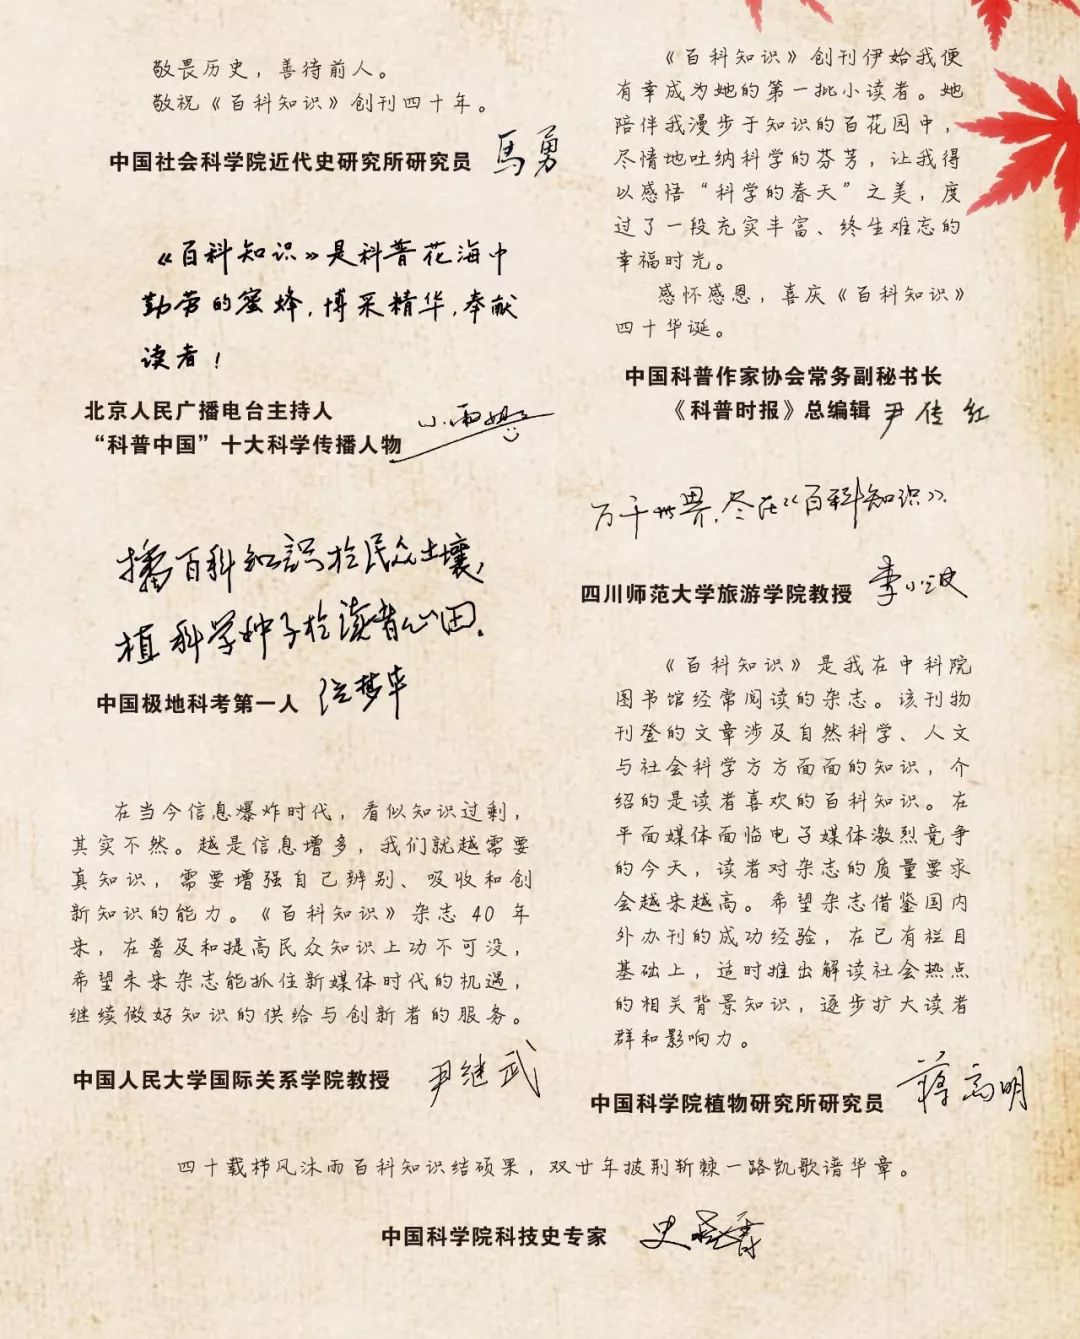 敬畏历史，善待前人。
敬祝《百科知识》创刊四十年。
中国社会科学院近代史研究所研究员 馬勇
《百科知识》是科普花海中
勤劳的蜜蜂，博采精华，奉献
读者！
北京人民广播电台主持人
“科普中国”十大科学传播人物
小雨姐
播百科知識於民众土壤，
植科学种子於读者心田。
中国极地科考第一人 位梦华
在当今信息爆炸时代，看似知识过剩，
其实不然。越是信息增多，我们就越需要
真知识，需要增强自己辨别、吸收和创
新知识的能力。《百科知识》杂志 40 年
来，在普及和提高民众知识上功不可没，
希望未来杂志能抓住新媒体时代的机遇，
继续做好知识的供给与创新者的服务。
中国人民大学国际关系学院教授 尹继武
《百科知识》创刊伊始我便
有幸成为她的第一批小读者。她
陪伴我漫步于知识的百花园中，
尽情地吐纳科学的芬芳，让我得
以感悟“科学的春天”之美，度
过了一段充实丰富、终生难忘的
幸福时光。
感怀感恩，喜庆《百科知识》
四十华诞。
中国科普作家协会常务副秘书长
《科普时报》总编辑 尹传红
万千世界，尽在《百科知识》。
四川师范大学旅游学院教授 李小波
《百科知识》是我在中科院
图书馆经常阅读的杂志。该刊物
刊登的文章涉及自然科学、人文
与社会科学方方面面的知识，介
绍的是读者喜欢的百科知识。在
平面媒体面临电子媒体激烈竞争
的今天，读者对杂志的质量要求
会越来越高。希望杂志借鉴国内
外办刊的成功经验，在已有栏目
基础上，适时推出解读社会热点
的相关背景知识，逐步扩大读者
群和影响力。
中国科学院植物研究所研究员 蒋高明
四十载栉风沐雨百科知识结硕果，双廿年披荆斩棘一路凯歌谱华章。
中国科学院科技史专家 史